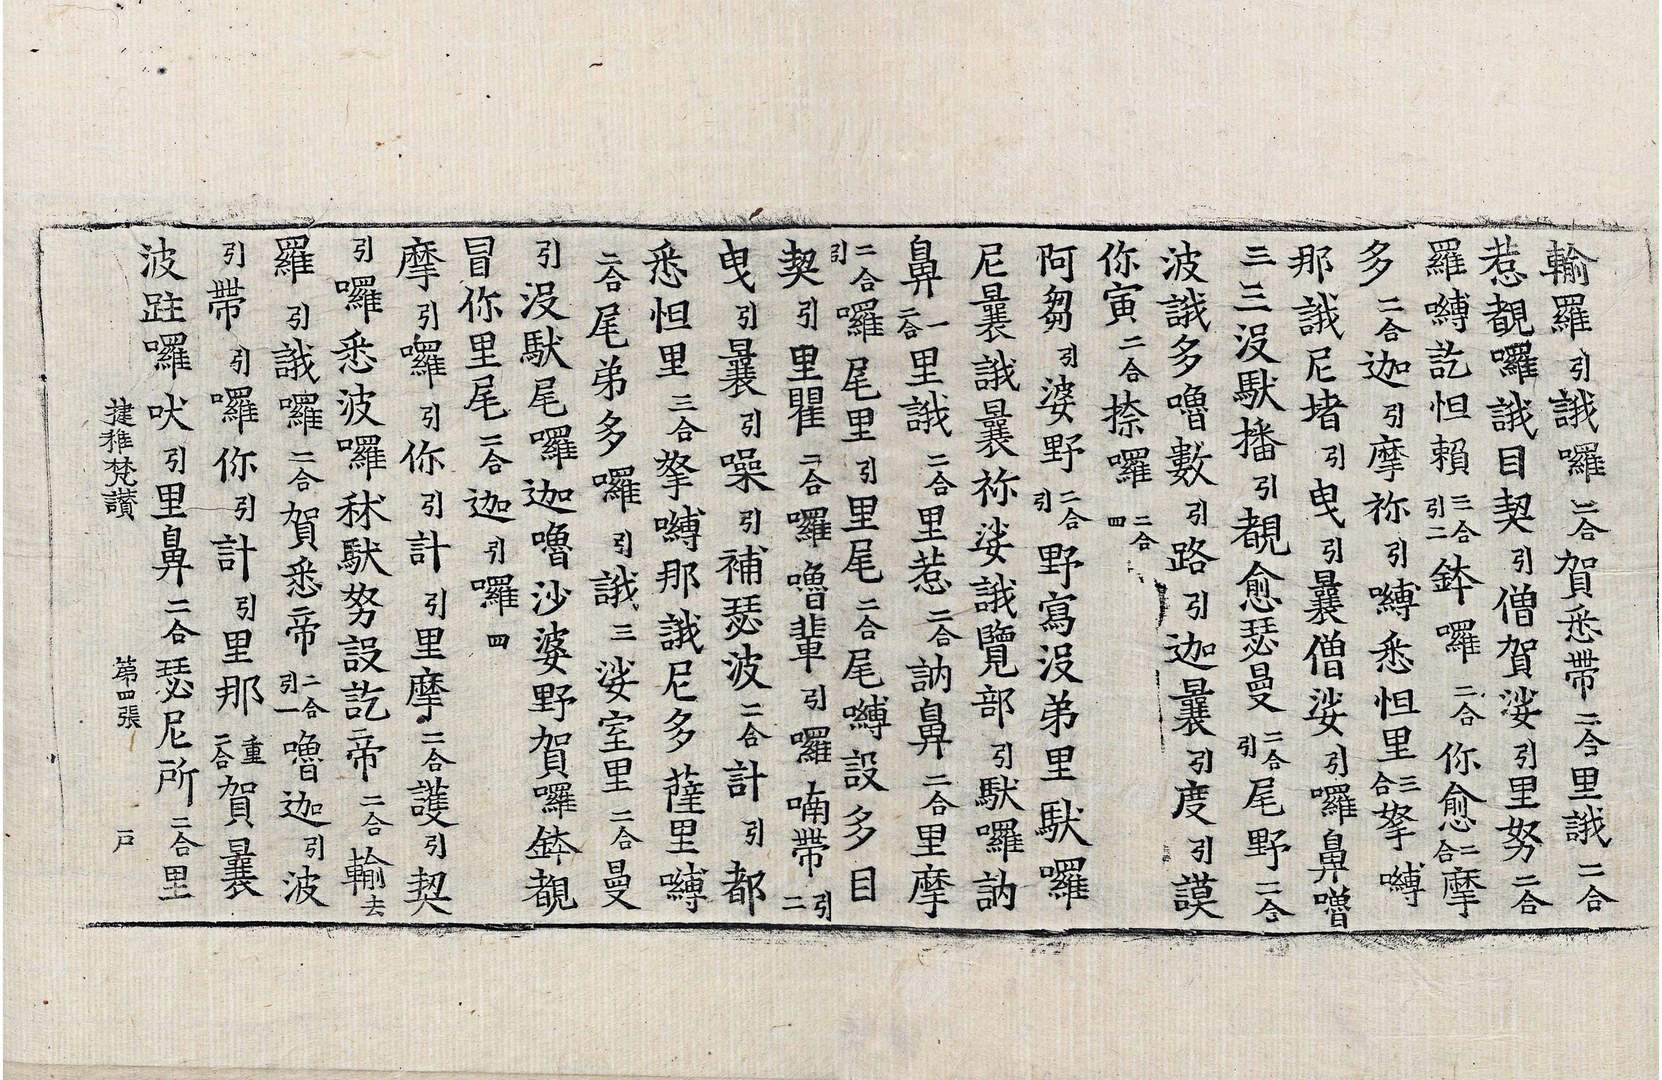 輸羅引誐囉二合賀悉帶二合里誐二合
惹覩囉誐目契引僧賀娑引里努二合
羅嚩訖怛賴三合引二鉢囉二合你愈二合摩
多二合迦引摩祢引嚩悉怛里三合拏嚩
那誐尼堵引曳引曩僧娑引囉鼻噌
三三沒馱播引覩愈瑟曼二合引尾野二合
波誐多嚕數引路引迦曩引度引謨
你寅二合捺囉二合四
阿芻引婆野二合引野寫沒弟里馱囉
尼曩誐曩祢娑誐覽部引馱囉訥
鼻一二合里誐二合里惹二合訥鼻二合里摩
二合引囉尾里引里尾二合尾嚩設多目
契引里瞿二合囉嚕輩引囉喃帶引二
曳引曩引噪引補瑟波二合計引都
悉怛里三合拏嚩那誐尼多薩里嚩
二合尾弟多囉引誐三娑室里二合曼
引沒馱尾囉迦嚕沙婆野賀囉鉢覩
冒你里尾二合迦引囉四
摩引囉引你引計引里摩二合護引契
引囉悉波囉秫馱努設訖帝二合輸去
羅引誐囉二合賀悉帝二合引一嚕迦引波
引帶引囉你引計引里那重二合賀曩
波跓囉吠引里鼻二合瑟尼所二合里
揵稚梵讚 第四張 戸